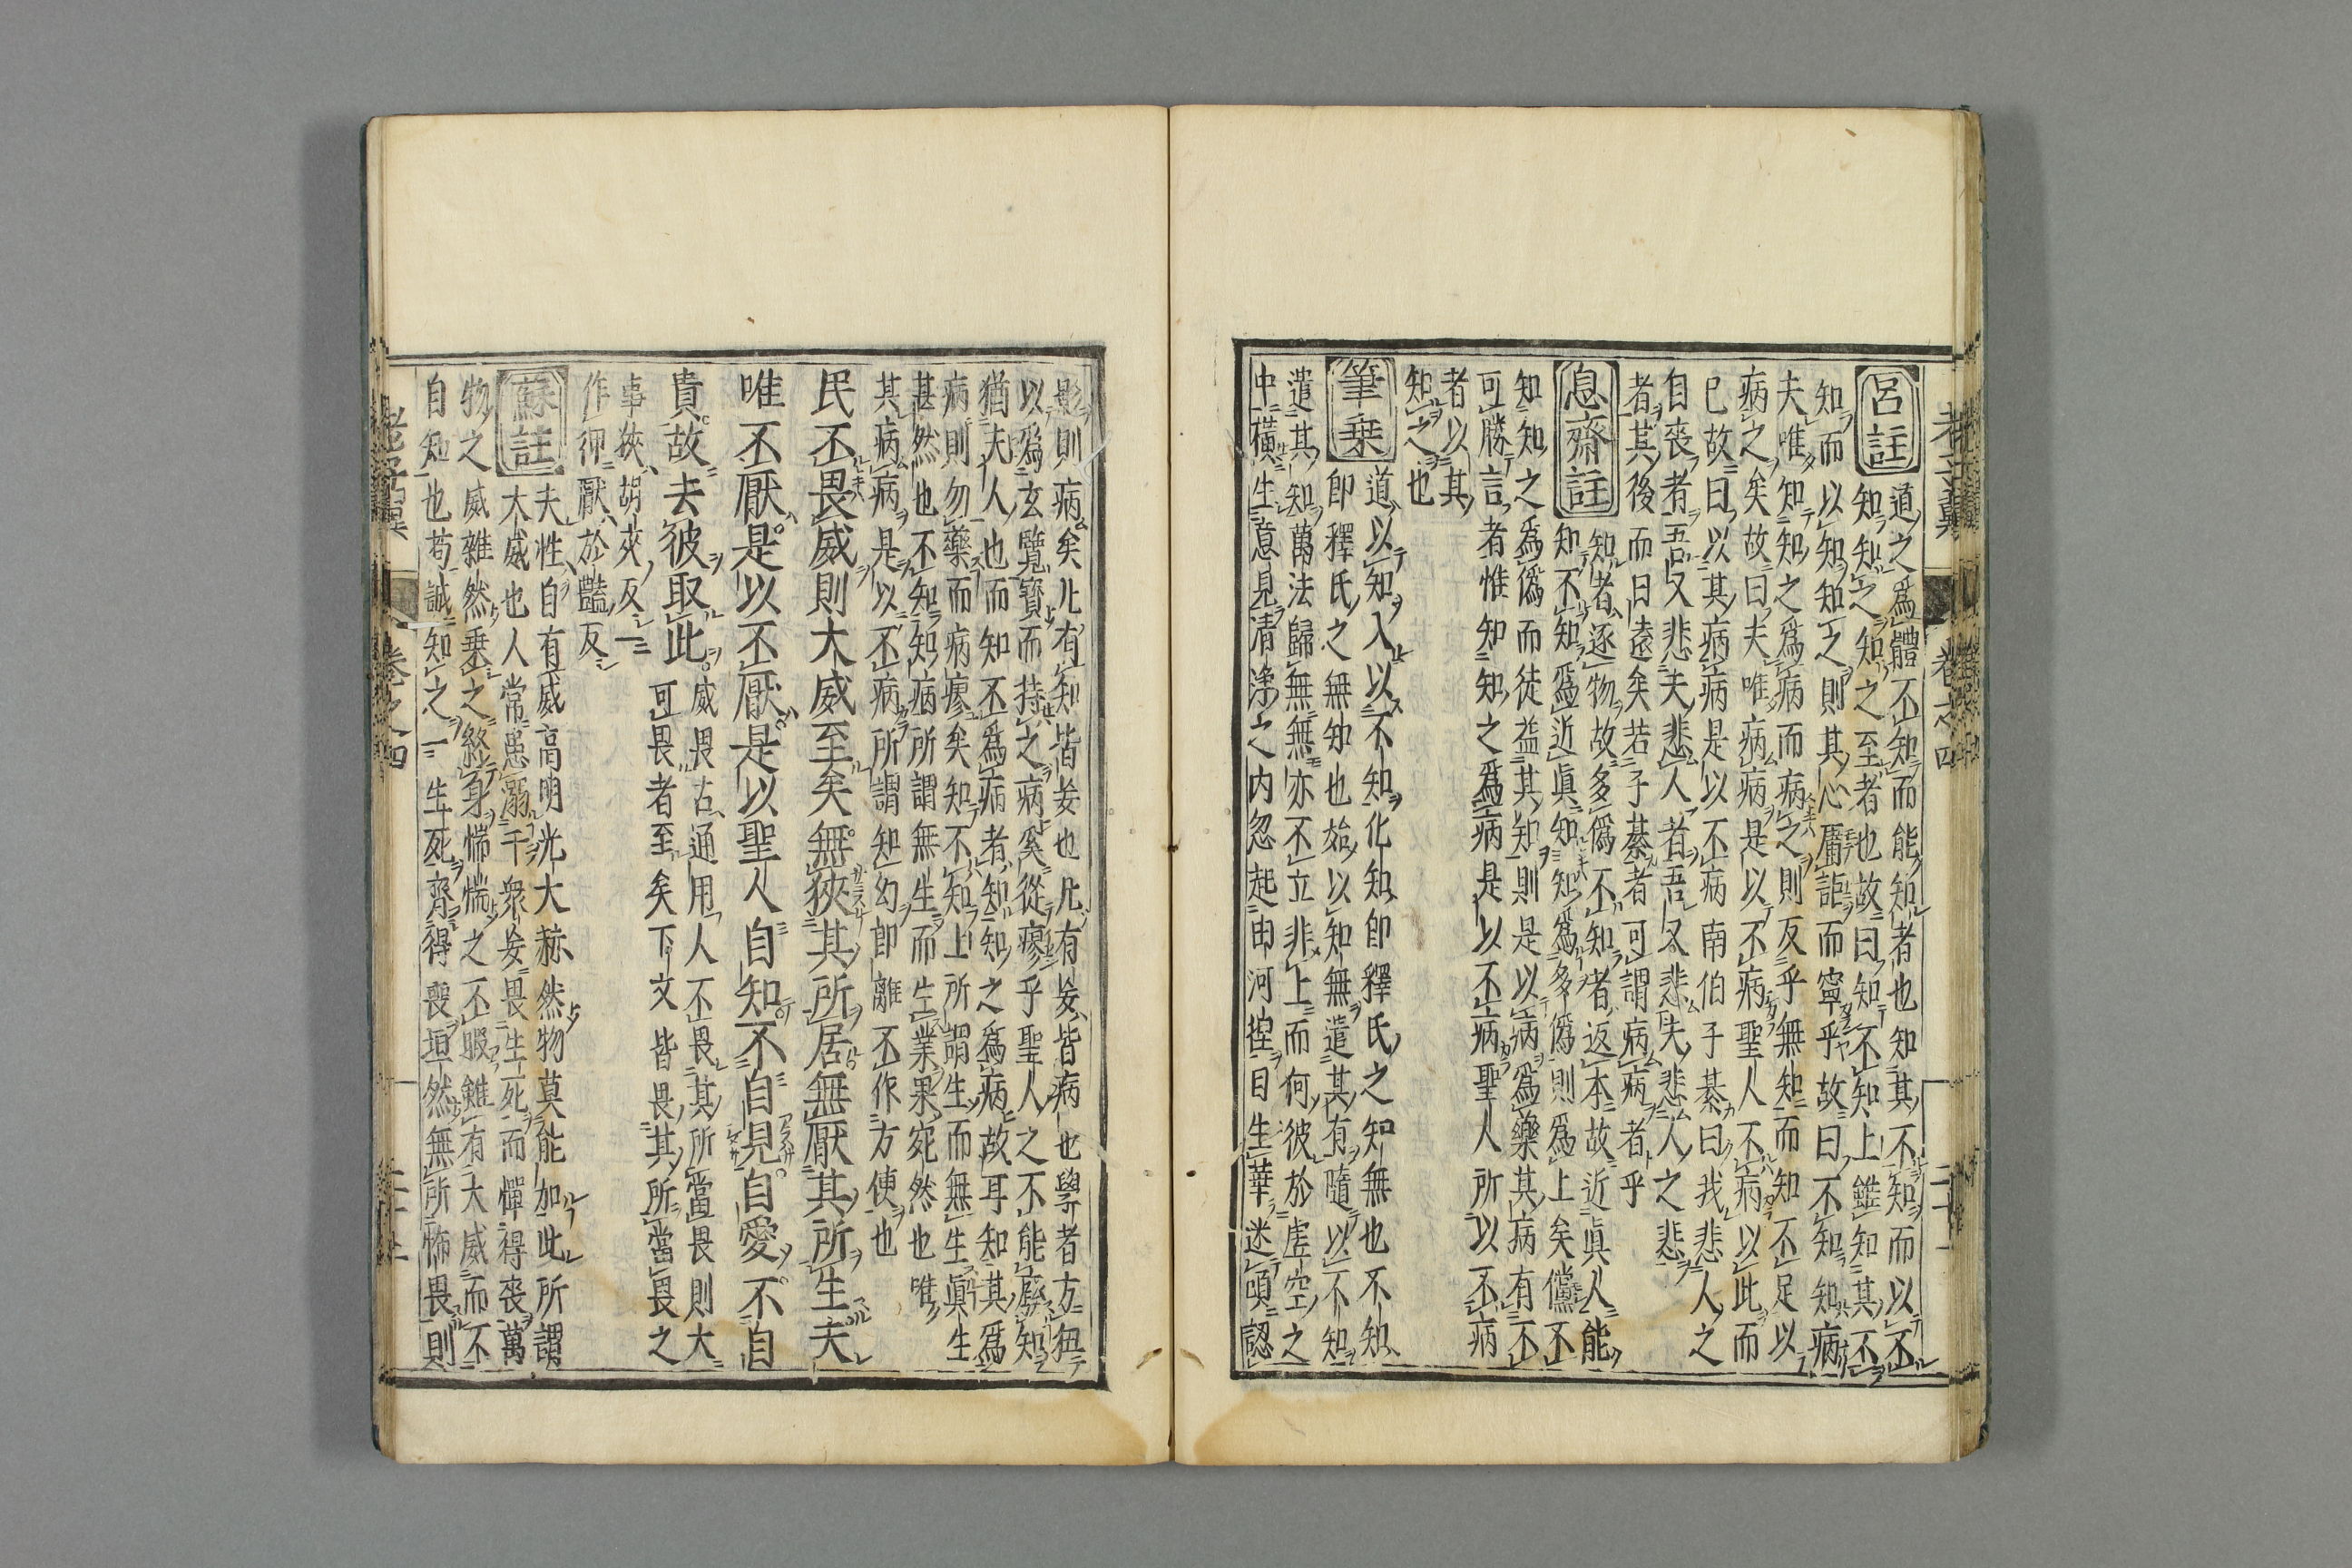 呂註
道之爲體不知而能知者也知其不知而以不
知知之知之至者也故曰知不知上雖知其不
知而以知知之則其心庸詎而寧乎故曰不知知病
夫唯知知之爲病而病之則反乎無知而知不足以
病之矣故曰夫唯病病是以不病聖人不病以此而
已故曰以其病病是以不病南伯子綦曰我悲人之
自喪者吾又悲夫悲人者吾又悲夫悲人之悲
者其後而日遠矣若子綦者可謂病病者乎
息齋註
知者逐物故多僞不知者返本故近眞人能
知不知爲近眞知知爲多僞則爲上矣儻不
知知之爲僞而徒益其知則是以病爲藥其病有不
可勝言者惟知知之爲病是以不病聖人所以不病
者以其
知之也
筆乗
道以知入以不知化知即釋氏之知無也不知
即釋氏之無知也始以知無遣其有隨以不知
遣其知萬法歸無無亦不立非上而何彼於虚空之
中橫生意見清淨之内忽起由河揑目生華迷頭認
影則病矣凡有知皆妄也凡有妄皆病也學者方狃
以爲玄覽寶而持之病奚從瘳乎聖人之不能廢知
猶夫人也而知不爲病者知知之爲病故耳知其爲
病則勿藥而病瘳矣知不知上所謂生而無生眞生
甚然也不知知病所謂無生而生業果宛然也唯
其病病是以不病所謂知幻即離不作方便也
民不畏威則大威至矣無狹其所居無厭其所生夫
唯不厭是以不厭是以聖人自知不自見自愛不自
貴故去彼取此
威畏古通用人不畏其所當畏則大
可畏者至矣下文皆畏其所當畏之
事狹胡夾反一
作狎厭於豔反
蘇註
夫性自有威高明光大赫然物莫能加此所謂
大威也人常患溺千衆妄畏生死而憚得喪萬
物之威雜然乗之終身惴惴之不暇雖有大威而不
自知也苟誠知之一生死齊得喪坦然無所怖畏則
老子翼 卷之四